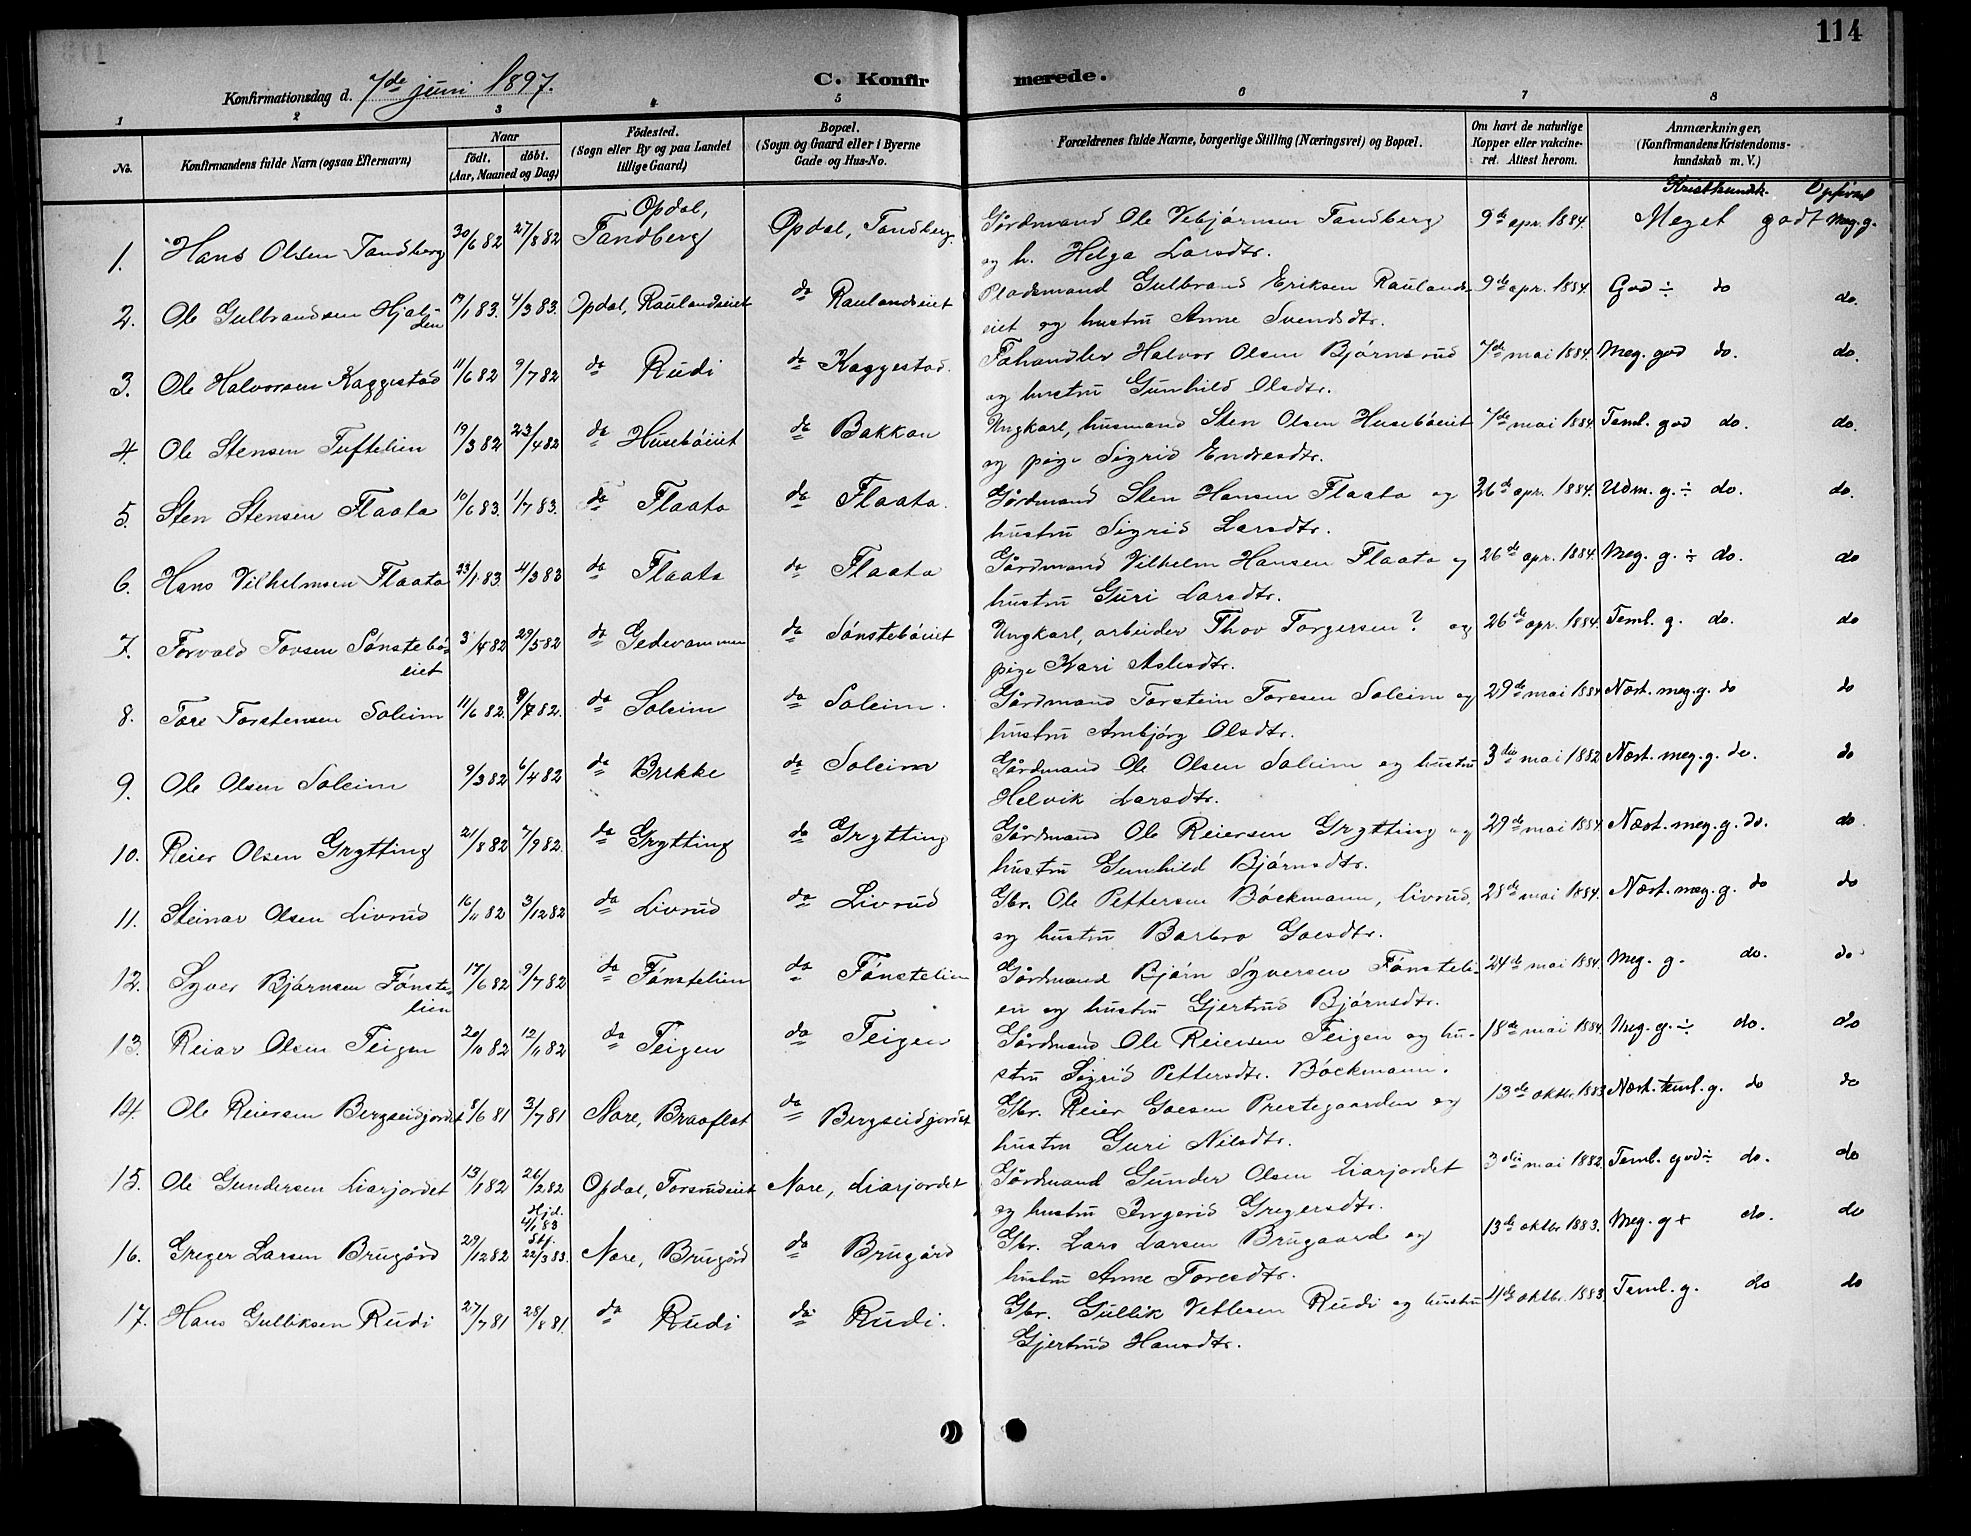 114
C. Konfirmerede.
Konfirmationsdag d. 7de juni 1897.
1 2 3 4 5 6 7 8
No. Konfirmandens fulde Navn (ogsaa Efternavn) Naar födt. döbt. (Aar, Maaned og Dag) Födested. (Sogn eller By og paa Landet tillige Gaard) Bopæl. (Sogn og Gaard eller i Byerne Gade og Hus-No. Forældrenes fulde Navne, borgerlige Stilling (Næringsvei) og Bopæl. Om havt de naturlige Kopper eller vakcineret. Attest herom. Anmærkninger. (Konfirmandens Kristendomskundskab m. V.)
Kristkundsk.
1. Hans Olsen Tandberg 30/6 82 27/8 82 Opdal, Tandberg Opdal, Tandberg Gårdmand Ole Vebjørnsen Tandberg 9de apr. 1884. Meget godt Meg. g.
og h. Helga Larsdtr.
2. Ole Gulbrandsen Hjalden 17/1 83. 4/3 83. Opdal, Raulandseiet do Raulandseiet Pladsmand Gulbrand Eriksen Raulands- 9de apr. 1884. God ÷ do do.
eiet og hustru Anne Svendsdtr.
3. Ole Halvorsen Kaggestad 11/6 82 9/7 82 do Rudi do Kaggestad. Fæhandler Halvor Olsen Bjørnsrud 7de mai 1884. Meg. god do. do.
og hustru Gunhild Olsdtr.
4. Ole Stensen Tuftelien 19/3 82 23/4 82 do Husebøeiet do Bakkan Ungkarl, husmand Sten Olsen Husebøeiet 7de mai 1884 Teml. god do. do.
og pige Sigrid Endresdtr.
5. Sten Stensen Flaata 10/6 83. 1/7 83. do Flaata do Flaata. Gårdmand Sten Hansen Flaata og 26de apr. 1884. Udm. g. ÷ do. do.
hustru Sigrid Larsdtr.
6. Hans Vilhelmsen Flaata 23/1 83. 4/3 83 do Flaata do Flaata Gårdmand Vilhelm Hansen Flaata og 26de apr. 1884. Meg. g. ÷ do. do
hustru Guri Larsdtr.
7. Torvald Tovsen Sønstebøeiet 3/4 82 29/5 82 do Gedevammen do Sønstebøeiet Ungkarl, arbeider Thov Torgersen? og 26de apr. 1884. Teml. g. do. do
pige Kari Aslesdtr.
8. Tore Torstensen Soleim 11/6 82. 9/7 82. do Soleim do Soleim. Gårdmand Torstein Toresen Soleim og 29de mai 1884 Næst. meg. g. do do
hustru Ambjørg Olsdtr.
9. Ole Olsen Soleim 9/3 82 6/4 82 do Brekke do Soleim Gårdmand Ole Olsen Soleim og hustru 3die mai 1882 Næst. meg. g. do. do
Helvik Larsdtr.
10. Reier Olsen Grytting 21/8 82 7/9 82. do Grytting do Grytting Gårdmand Ole Reiersen Grytting og 29de mai 1884. Næst. meg. g. do. do.
hustru Gunhild Bjørnsdtr.
11. Steinar Olsen Livrud 16/11 82 3/12 82 do Livrud do Livrud Gbr. Ole Pettersen Bøckmann, Livrud, 28de mai 1884. Næst. meg. g. do do
og hustru Barbro Goesdtr.
12. Syver Bjørnsen Fønstelien 17/6 82 9/7 82 do Fønstelien do Fønstelien Gårdmand Bjørn Syversen Fønsteli- 24de mai 1884. Meg. g. do. do
en og hustru Gjertrud Bjørnsdtr.
13. Reiar Olsen Teigen 20/10 82 12/11 82 do Teigen do Teigen Gårdmand Ole Reiersen Teigen og hu- 18de mai 1884. Meg. g. ÷ do. do
stru Sigrid Pettersdtr. Bøckmann.
14. Ole Reiersen Bergseidjordet 8/6 81 3/7 81 Nore, Braaflat do Bergseidjordet Gbr. Reier Goesen Prestegaarden og 13de oktbr 1883 Næst. teml. g. do do
hustru Guri Nilsdtr.
15. Ole Gundersen Liarjordet 13/1 82 26/2 82 Opdal, Torsrudeiet Nore, Liarjordet Gårdmand Gunder Olsen Liarjordet 3die mai 1882. Teml. god÷ do. do
og hustru Ingerid Gregersdtr.
16. Greger Larsen Brugård 29/12 82 Hjd. 4/1 83 Stf. 22/3 83. Nore, Brugård do Brugård Gbr. Lars Larsen Brugaard og 13de oktbr 1883. Meg. g + do. do
hustru Anne Toresdtr.
17. Hans Gulliksen Rudi 27/7 81 28/8 81. do Rudi do Rudi. Gbr. Gullik Vetlesen Rudi og hustru 4de oktbr. 1883. Teml. g. do do
Gjertrud Hansdtr.